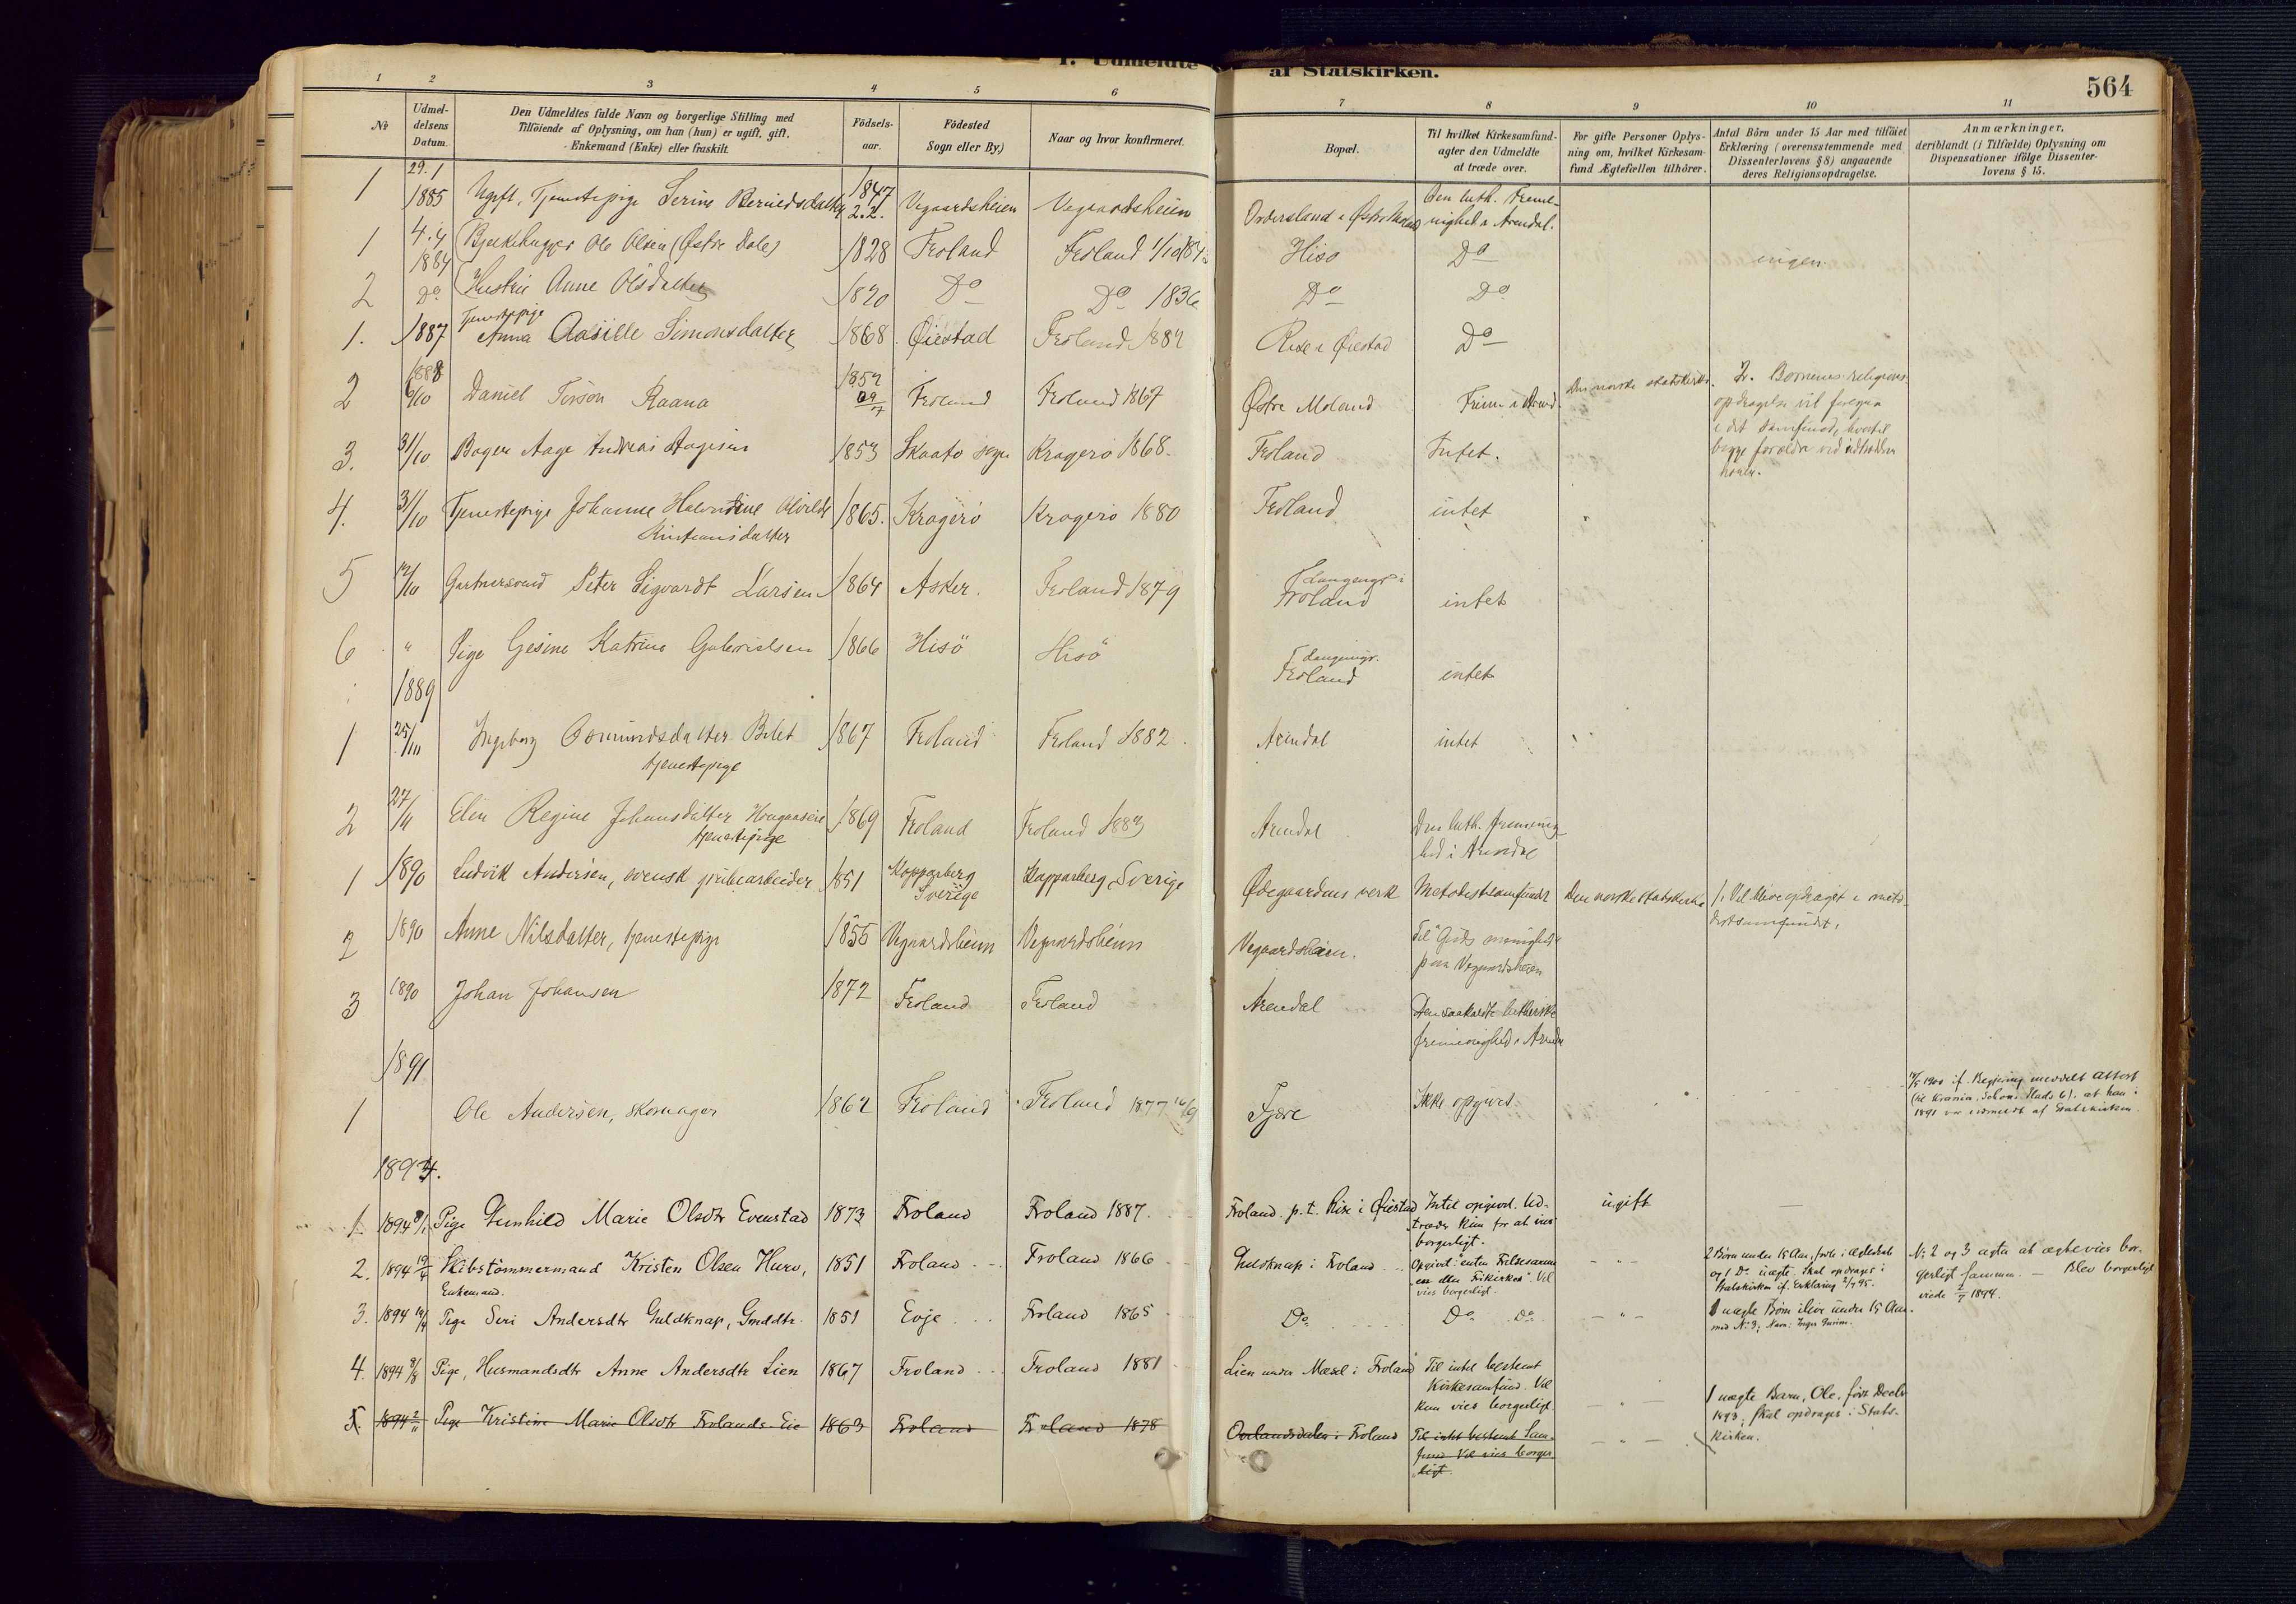 I. Udmeldte af Statskirken.
564
1 2 3 4 5 6 7 8 9 10 11
No
Udmel-
delsens
Datum.
Den Udmeldtes fulde Navn og borgerlige Stilling med
Tilføiende af Oplysning, om han (hun) er ugift, gift,
Enkemand (Enke) eller fraskilt.
Fødsels-
aar.
Fødested
Sogn eller By.)
Naar og hvor konfirmeret.
Bopæl.
Til hvilket Kirkesamfund-
agter den Udmeldte
at træde over.
For gifte Personer Oplys-
ning om, hvilket Kirkesam-
fund Ægtefællen tilhører.
Antal Børn under 15 Aar med tilføiet
Erklæring (overensstemmende med
Dissenterlovens § 8) angaaende
deres Religionsopdragelse.
Anmærkninger,
deriblandt (i Tilfælde) Oplysning om
Dispensationer ifølge Dissenter-
lovens § 15.
1 29.1 1885 Ugift, Tjenestepige Serine 1847 2.2. Vegaardsheien Vegaardsheien
Den luth. Frime-
nighed i Arendal.
1 4.4 1884 Ole Olsen (Østre Dale) 1828 Froland Froland Hisø Do ingen
2 Do Hustru Anne Olsdatter 1820 Do Do 1836 Do Do
Tjenestepige
1. 1887 Anna Simonsdatter 1868 Øiestad Froland Rise i Øiestad Do
2 1888 6/10 Daniel 1852 Froland Froland 1867 Østre Moland Den norske statskirke 2. Børnenes religions-
opdragelse vil foregaa
i det samfund, hvortil
begge forældre ved udtrædelsen
hører.
3. 31/10 Bager Aage Andreas 1853 Skaatø sogn Kragerø 1868. Froland Intet.
4. 31/10 Tjenestepige Johanne 1865. Kragerø Kragerø 1880 Froland intet
Kristiansdatter
5 12/10 Gartnersvend Peter Sigvardt Larsen 1864 Asker. Froland 1879 Froland intet
6 " Pige Gesine Katrine Gabrielsen 1866 Hisö Hisö Froland intet
1889
1 25/10 Ingeborg 1867 Froland Froland 1882. Arendal intet
tjenestepige
2 27/11 Elen Regine Johansdatter 1869 Froland Froland 1883 Arendal Den luth. frimenig-
hed i Arendal
tjenestepige
1 1890 Ludvik Andersen, svensk grubearbeider 1851 Kopparberg Sverige Kopparberg, Sverige Ødegaardens verk Metodistsamfundet Den norske statskirke 1, Vil blive opdraget i meto-
distsamfundet.
2 1890 Anne Nilsdatter, tjenestepige 1855 Vegaardsheien Vegaardsheien Vegaardsheien. Til "Guds menighed"
paa Vegaardsheien
3 1890 Johan Johansen 1872 Froland Froland Arendal Den saakaldte lutherske
frimenighed i Arendal
1891
1 Ole Andersen, skomager 1862 Froland Froland 1877 Fjære Ikke opgivet.
1900 if. Begjæring meddelt Attest
at han i
1891 var udmeldt af Statskirken.
1894.
1. 1894 Pige Gunhild Marie Olsdtr Evenstad 1873 Froland Froland 1887. Froland p.t. Rise i Øiestad Intet opgivet. Ud-
træder kun for at vies
borgerligt.
ugift —
2. 1894 19/4 Skibstömmermand Kristen Olsen Hurv, 1851 Froland Froland 1866 Guldknap i Froland
Enkemand.
Opgivet: enten Frelsesarmeen
eller Frikirken. Vil
vies borgerligt.
— " —
2 Børn under 15 Aar, født i ægteskab
og 1 Do uægte. Skal opdrages i
Statskirken if. Erklæring 2/7 95.
No 2 og 3 agter at ægtevies bor-
gerligt sammen. — Blev borgerligt
viede 2/7 1894.
3. 1894 19/4 Pige Seri Andersdtr Guldknap, Gmddtr. 1851 Evje Froland 1865 Do Do Do — " —
1 uægte Barn ikke under 15 Aar
med No 3; Navn: Inger
4. 1894 9/8 Pige, Husmandsdtr Anne Andersdtr Lien 1867 Froland Froland 1881 Lien under Mæsel i Froland Til intet bestemt
Kirkesamfund. Vil
kun vies borgerligt.
— " —
1 uægte Barn, Ole, født Decbr
1893; skal opdrages i Stats-
kirken.
5. 1894 2/11 Pige Kristine Marie Olsdtr Frolands Eie 1863 Froland Froland 1878 i Froland Til intet bestemt Sam-
fund. Vil vies borger-
ligt.
— " —